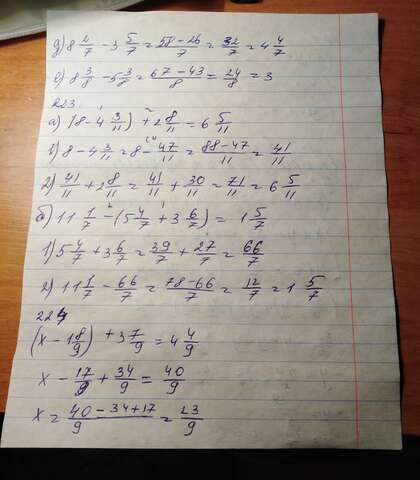 д) 8 2/7 - 3 5/7 = 58-26/7 = 32/7 = 4 4/7
е) 8 3/8 - 5 3/8 = 67-43/8 = 24/8 = 3
223
а) (8 - 4 3/11) + 2 8/11 = 6 5/11
1) 8 - 4 3/11 = 8 - 47/11 = 88-47/11 = 41/11
2) 41/11 + 2 8/11 = 41/11 + 30/11 = 71/11 = 6 5/11
б) 11 1/7 - (5 4/7 + 3 6/7) = 1 5/7
1) 5 4/7 + 3 6/7 = 39/7 + 27/7 = 66/7
2) 11 1/7 - 66/7 = 78-66/7 = 12/7 = 1 5/7
224
(x - 1 8/9) + 3 7/9 = 4 4/9
x - 17/9 + 34/9 = 40/9
x = 40-34+17/9 = 23/9